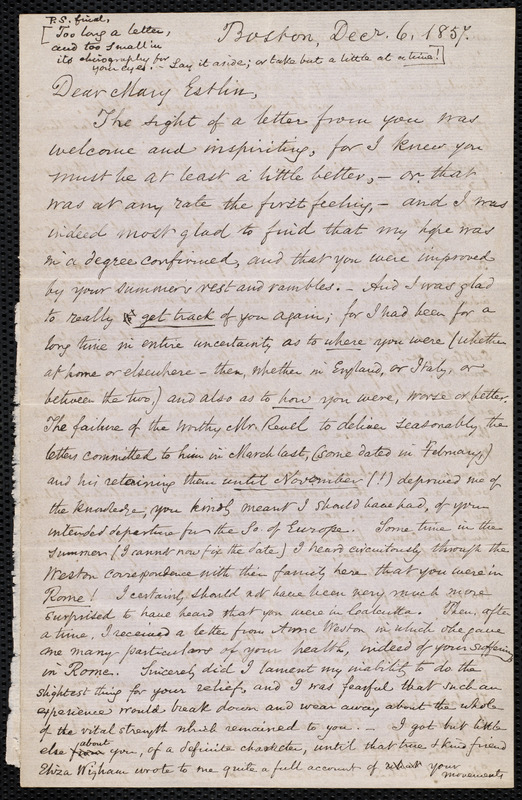 P.S. find,
[Too long a letter,
and too small in
its chirography for
your eyes. - Lay it aside; or take but a little at a time!]
Boston, Decr. 6, 1857.
Dear Mary Estlin,
The sight of a letter from you was
welcome and inspiriting, for I knew you
must be at least a little better, - or that
was at any rate the first feeling, - and I was
indeed most glad to find that my hope was
in a degree confirmed, and that you were improved
by your summer's rest and rambles. - And I was glad
to really get track of you again; for I had been for a
long time in entire uncertainty as to where you were (whether
at home or elsewhere - then, whether in England, or Italy, or
between the two,) and also as to how you were, worse or better.
The failure of the worthy Mr. Revel to deliver seasonably the
letters committed to him in March last, (some dated in February,)
and his retaining them until November (!!) deprived me of
the knowledge, you kindly meant I should have had, of your
intended departure for the So. of Europe. Some time in the
summer (I cannot now fix the date) I heard circuitously through the
Weston correspondence with their family here that you were in
Rome! I certainly should not have been very much more
surprised to have heard that you were in Calcutta. Then, after
a time, I received a letter from Anne Weston in which she gave
me many particulars of your health, indeed of your suffering
in Rome. Sincerely did I lament my inability to do the
slightest thing for your relief, and I was fearful that such an
experience would break down and wear away about the whole
of the vital strength which remained to you. - I got but little
else from about you, of a definite character, until that true & kind friend
Eliza Wigham wrote to me quite a full account of what your
movements